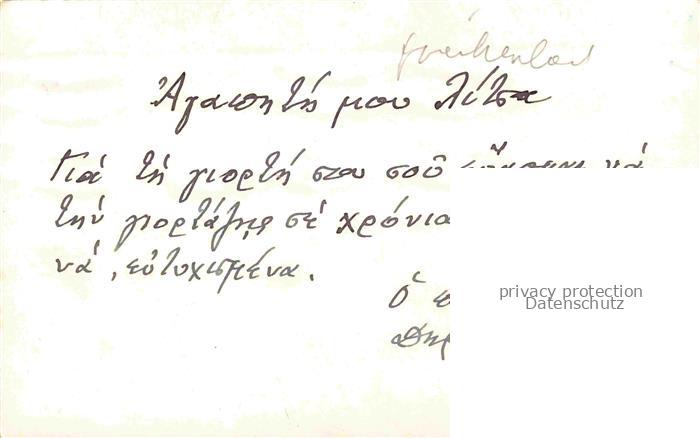 Ἀγαπητή μου Λίτσα
Γιά τή γιορτή σου σοῦ νά
τήν γιορτάζης σέ χρόνια
νά, εὐτυχισμένα.
Ὁ
privacy protection
Datenschutz